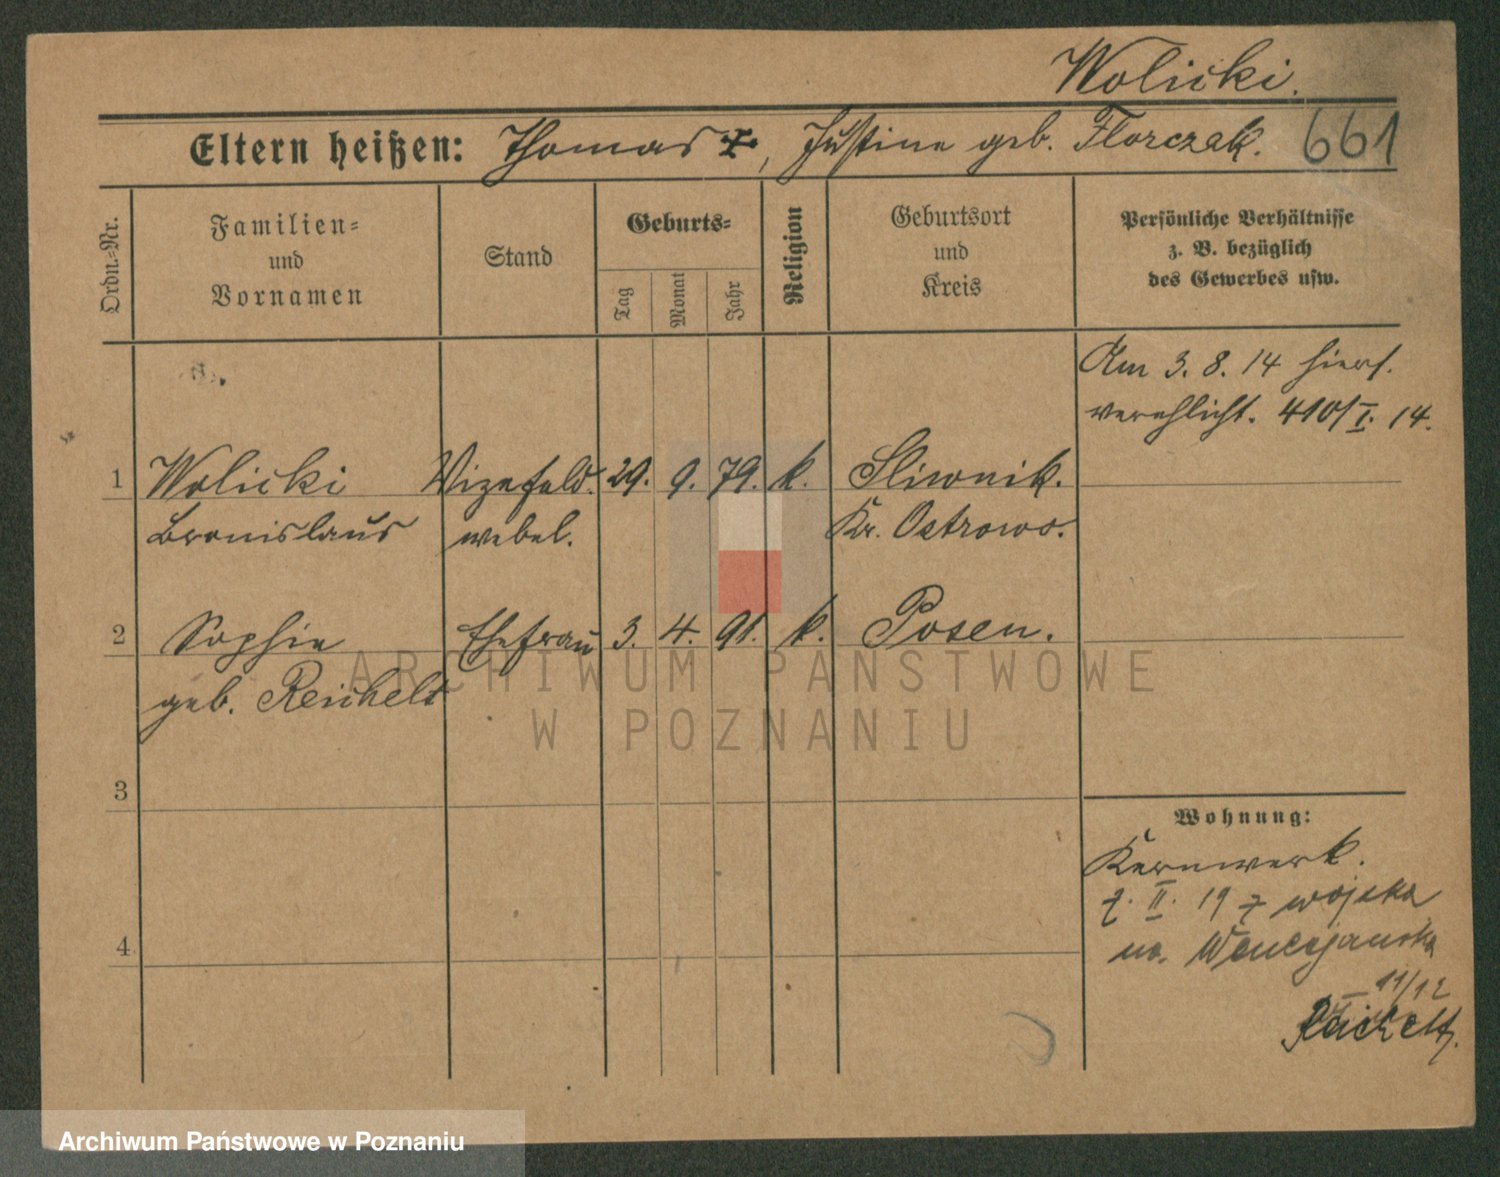 Wolicki.
Eltern heißen: Thomas +, Justine geb. Florczak. 661
Ordn.-Nr.
Familien-
und
Vornamen
Stand
Geburts-
Tag
Monat
Jahr
Religion
Geburtsort
und
Kreis
Persönliche Verhältnisse
z. B. bezüglich
des Gewerbes usw.
Am 3. 8. 14 hiers.
verehlicht. 410/I. 14.
1 Wolicki Vizefeld- 29. 9. 79. k. Sliwnik.
Bronislaus webel. Kr. Ostrowo.
2 Sophie Ehefrau 3. 4. 91. k. Posen.
geb. Reichelt
3
4
Wohnung:
Kernwerk.
7. II. 19 z wojska
na. Wenecjanska
11/12
Reichelt.
ARCHIWUM PAŃSTWOWE
W POZNANIU
Archiwum Państwowe w Poznaniu